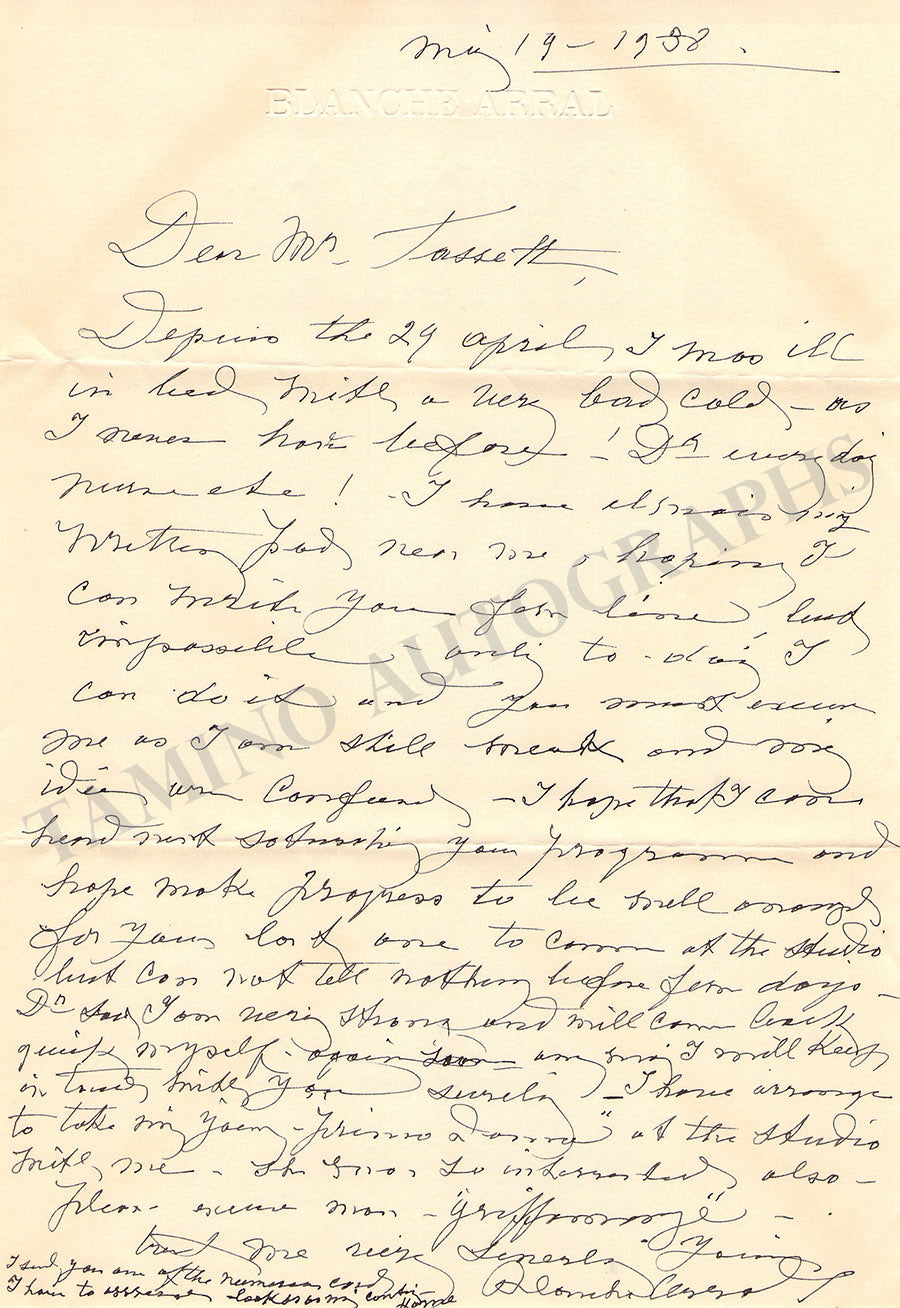 May 19 - 1938.
BLANCHE ARRAL
Dear Mr. Tassett,
Depuis the 29 april, I was ill
in bed with a very bad cold - as
I never have before ! Dr every day
nurse etc ! - I have always my
written pad near me, hoping I
can write you few line, but
impossible - only to-day I
can do it and you must excuse
me as I am still weak and my
ideas are confused - I hope that I can
heard next saturday your programme and
hope make progress to be well enough
for your last one to come at the studio
but can not tell nothing before few days -
Dr say I am very strong and will come back
quick myself - again soon - any way I will keep
in touch with you surely - I have arrange
to take my young "prima Donna" at the studio
with me - she was so interested also -
please excuse mon - "griffonnage" -
trust me very sincerely yours
Blanche Arral
I send you one of the numerous card
I have to assess look as a coming
Home
TAMINO AUTOGRAPHS